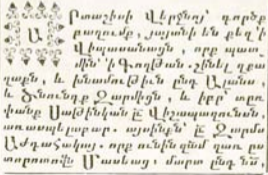 Ա
րտաշիսի Վերջնոյ՝ գործք
բազումք, յայտնի են քեզ՝ ի
Վիպասանացն, որ պատ
մին՝ ի Գողթան. շինել զքա
ղաքն, և խնամութիւն ընդ Ալանս,
և ծնունդք Զարմիցն, և իբր տռփ
փանք Սաթինկան ընդ Վիշապազունսն,
առասպելաբար. այսինքն՝ ընդ Զարմս
Աժդահակայ. որք ունին զամ առ ըս
տորոտովն Մասեաց, մարտ ընդ նն,